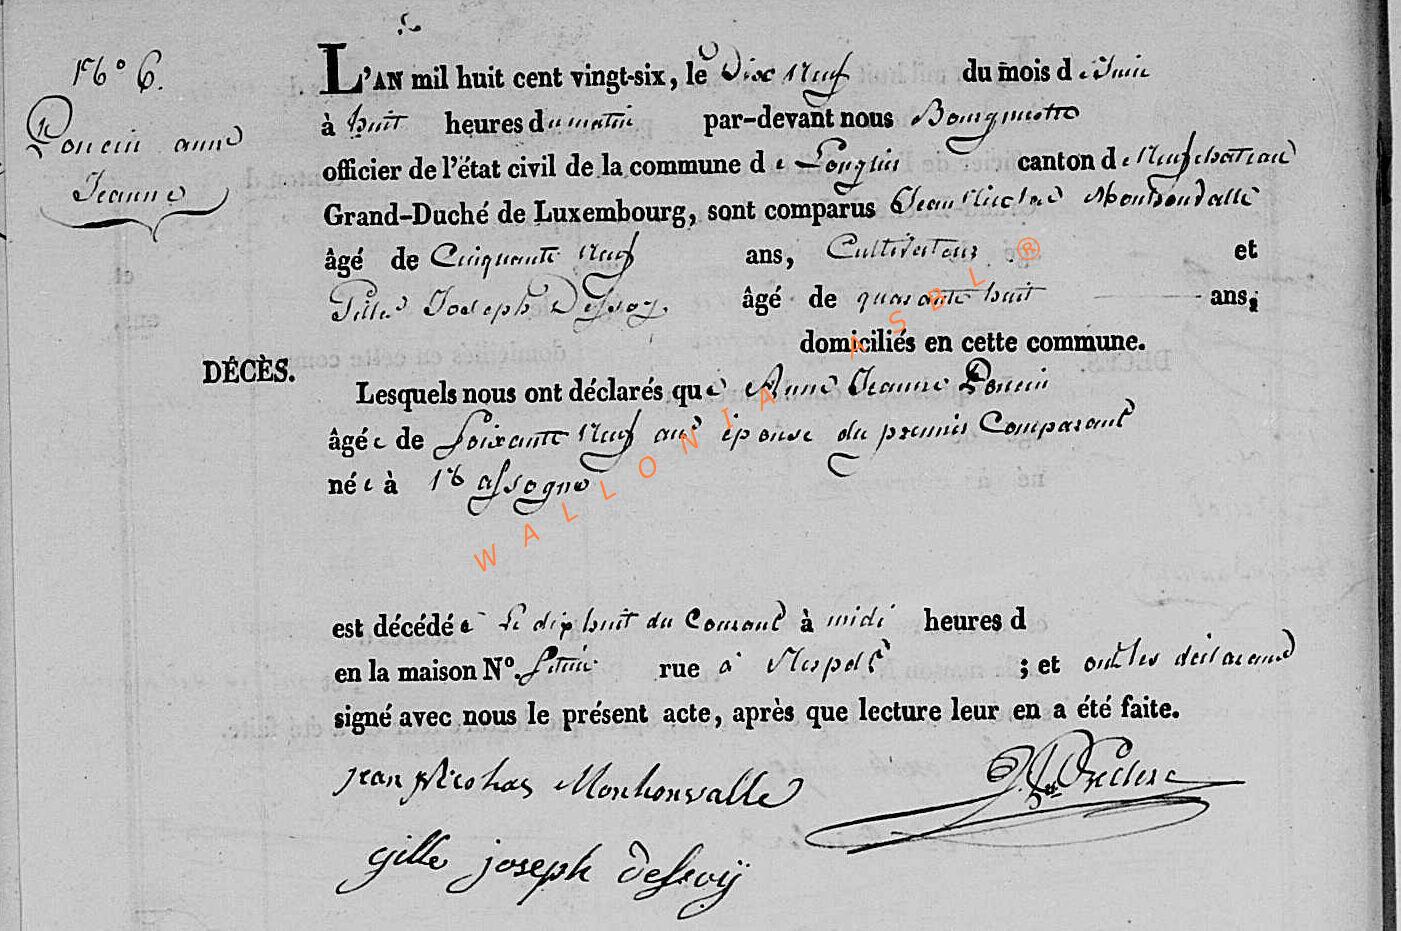 N° 6.
Poncin anne
Jeanne
L'AN mil huit cent vingt-six, le Dix Neuf du mois de Juin
à huit heures du matin par-devant nous Bourgmestre
officier de l'état civil de la commune de Longlier canton de Neufchateau
Grand-Duché de Luxembourg, sont comparus Jean Nicolas Monhonvalle
âgé de Cinquante Neuf ans, Cultivateur et
Gille Joseph Dessoy, âgé de quarante huit ans,
domiciliés en cette commune.
DÉCÈS.
Lesquels nous ont déclarés que Anne Jeanne Poncin
âgée de Soixante Neuf ans épouse du premier Comparant
née à Assogne
est décédée Le dix huit du Courant à midi heures d
en la maison N°. rue à ; et ont les déclarans
signé avec nous le présent acte, après que lecture leur en a été faite.
jean Nicolas Monhonvalle
gille joseph Dessoÿ
WALLONIA ASBL ®